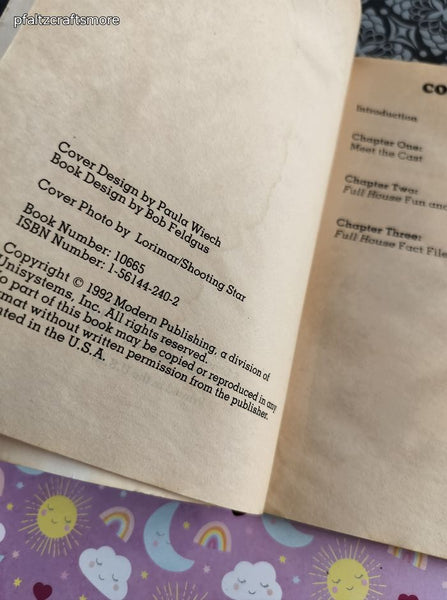 pfaltzcraftsmore
Cover Design by Paula Wiech
Book Design by Bob Feldgus
Cover Photo by Lorimar/Shooting Star
Book Number: 10665
ISBN Number: 1-56144-240-2
Copyright © 1992 Modern Publishing, a division of
Unisystems, Inc. All rights reserved.
o part of this book may be copied or reproduced in any
rmat without written permission from the publisher.
nted in the U.S.A.
CO
Introduction
Chapter One:
Meet the Cast
Chapter Two:
Full House Fun and
Chapter Three:
Full House Fact File